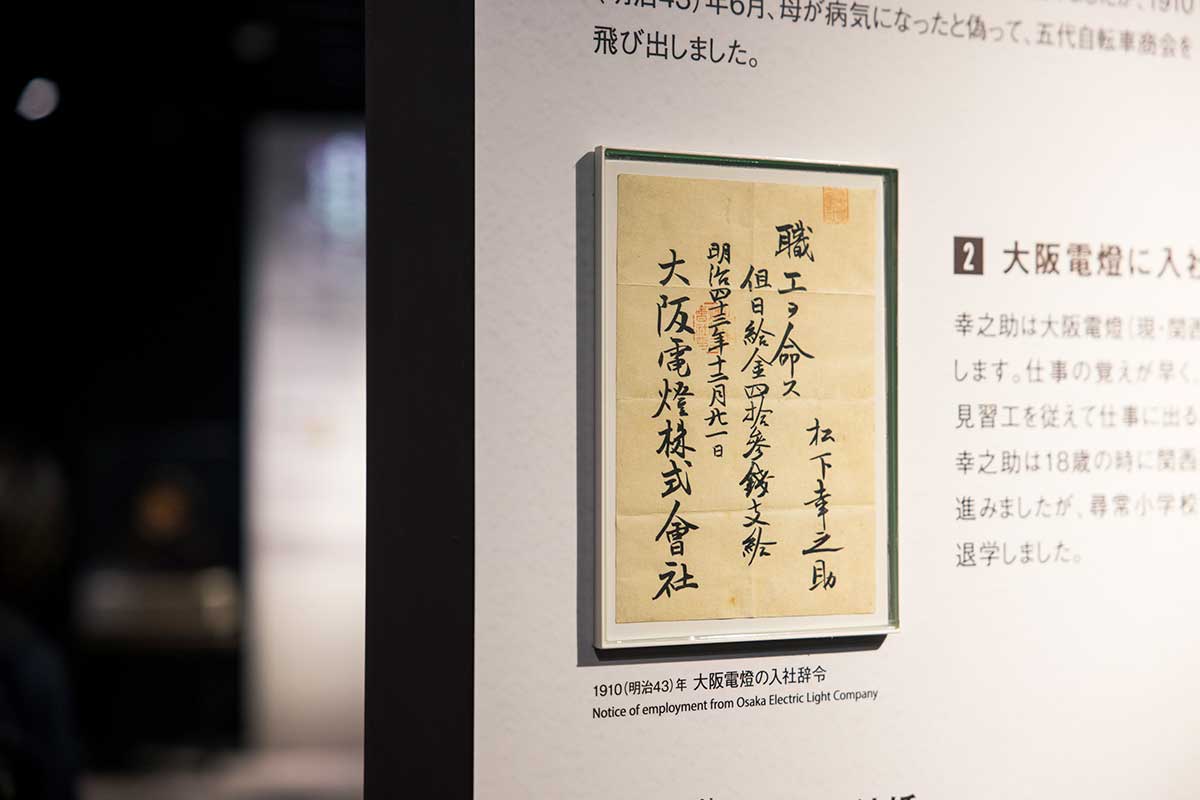 (明治43)年6月、母が病気になったと偽って、五代自転車商会を
飛び出しました。
松下幸之助
職工ヲ命ス
但日給金四拾参錢支給
明治四十三年十二月廿一日
大阪電燈株式會社
1910(明治43)年 大阪電燈の入社辞令
Notice of employment from Osaka Electric Light Company
2 大阪電燈に入社
幸之助は大阪電燈(現・関西
します。仕事の覚えが早く、
見習工を従えて仕事に出る
幸之助は18歳の時に関西
進みましたが、尋常小学校
退学しました。